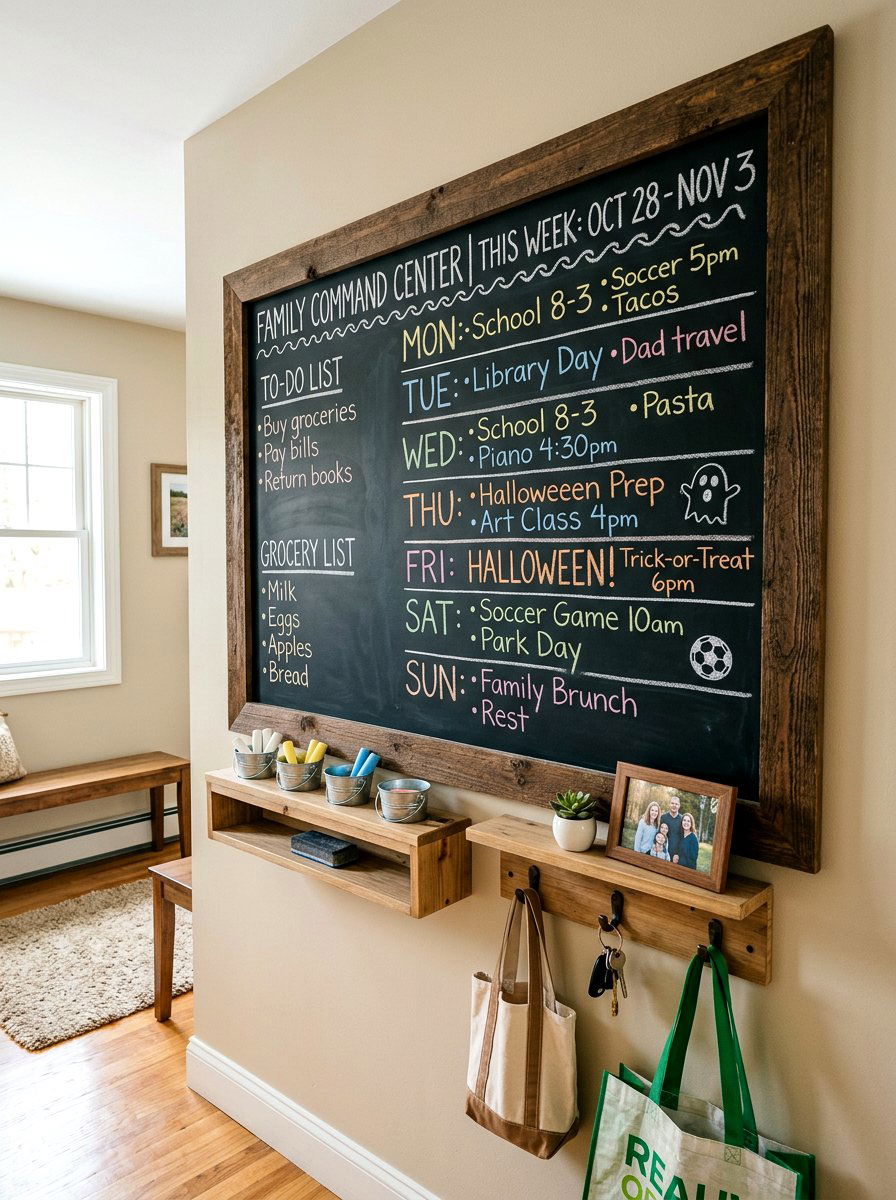 FAMILY COMMAND CENTER | THIS WEEK: OCT 28 - NOV 3
TO-DO LIST
• Buy groceries
• Pay bills
• Return books
GROCERY LIST
• Milk
• Eggs
• Apples
• Bread
MON: • School 8-3 • Soccer 5pm
• Tacos
TUE: • Library Day • Dad travel
WED: • School 8-3 • Pasta
• Piano 4:30pm
THU: • Halloweeen Prep
• Art Class 4pm
FRI: HALLOWEEN! Trick-or-Treat
6pm
SAT: • Soccer Game 10am
• Park Day
SUN: • Family Brunch
• Rest